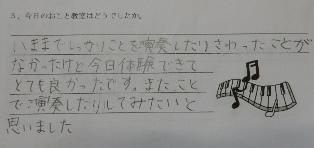 3、今日のおこと教室はどうでしたか。
いままでしっかりことを演奏したりさわったことが
なかったけど今日体験できて
とても良かったです。またこと
で演奏したりしてみたいと
思いました